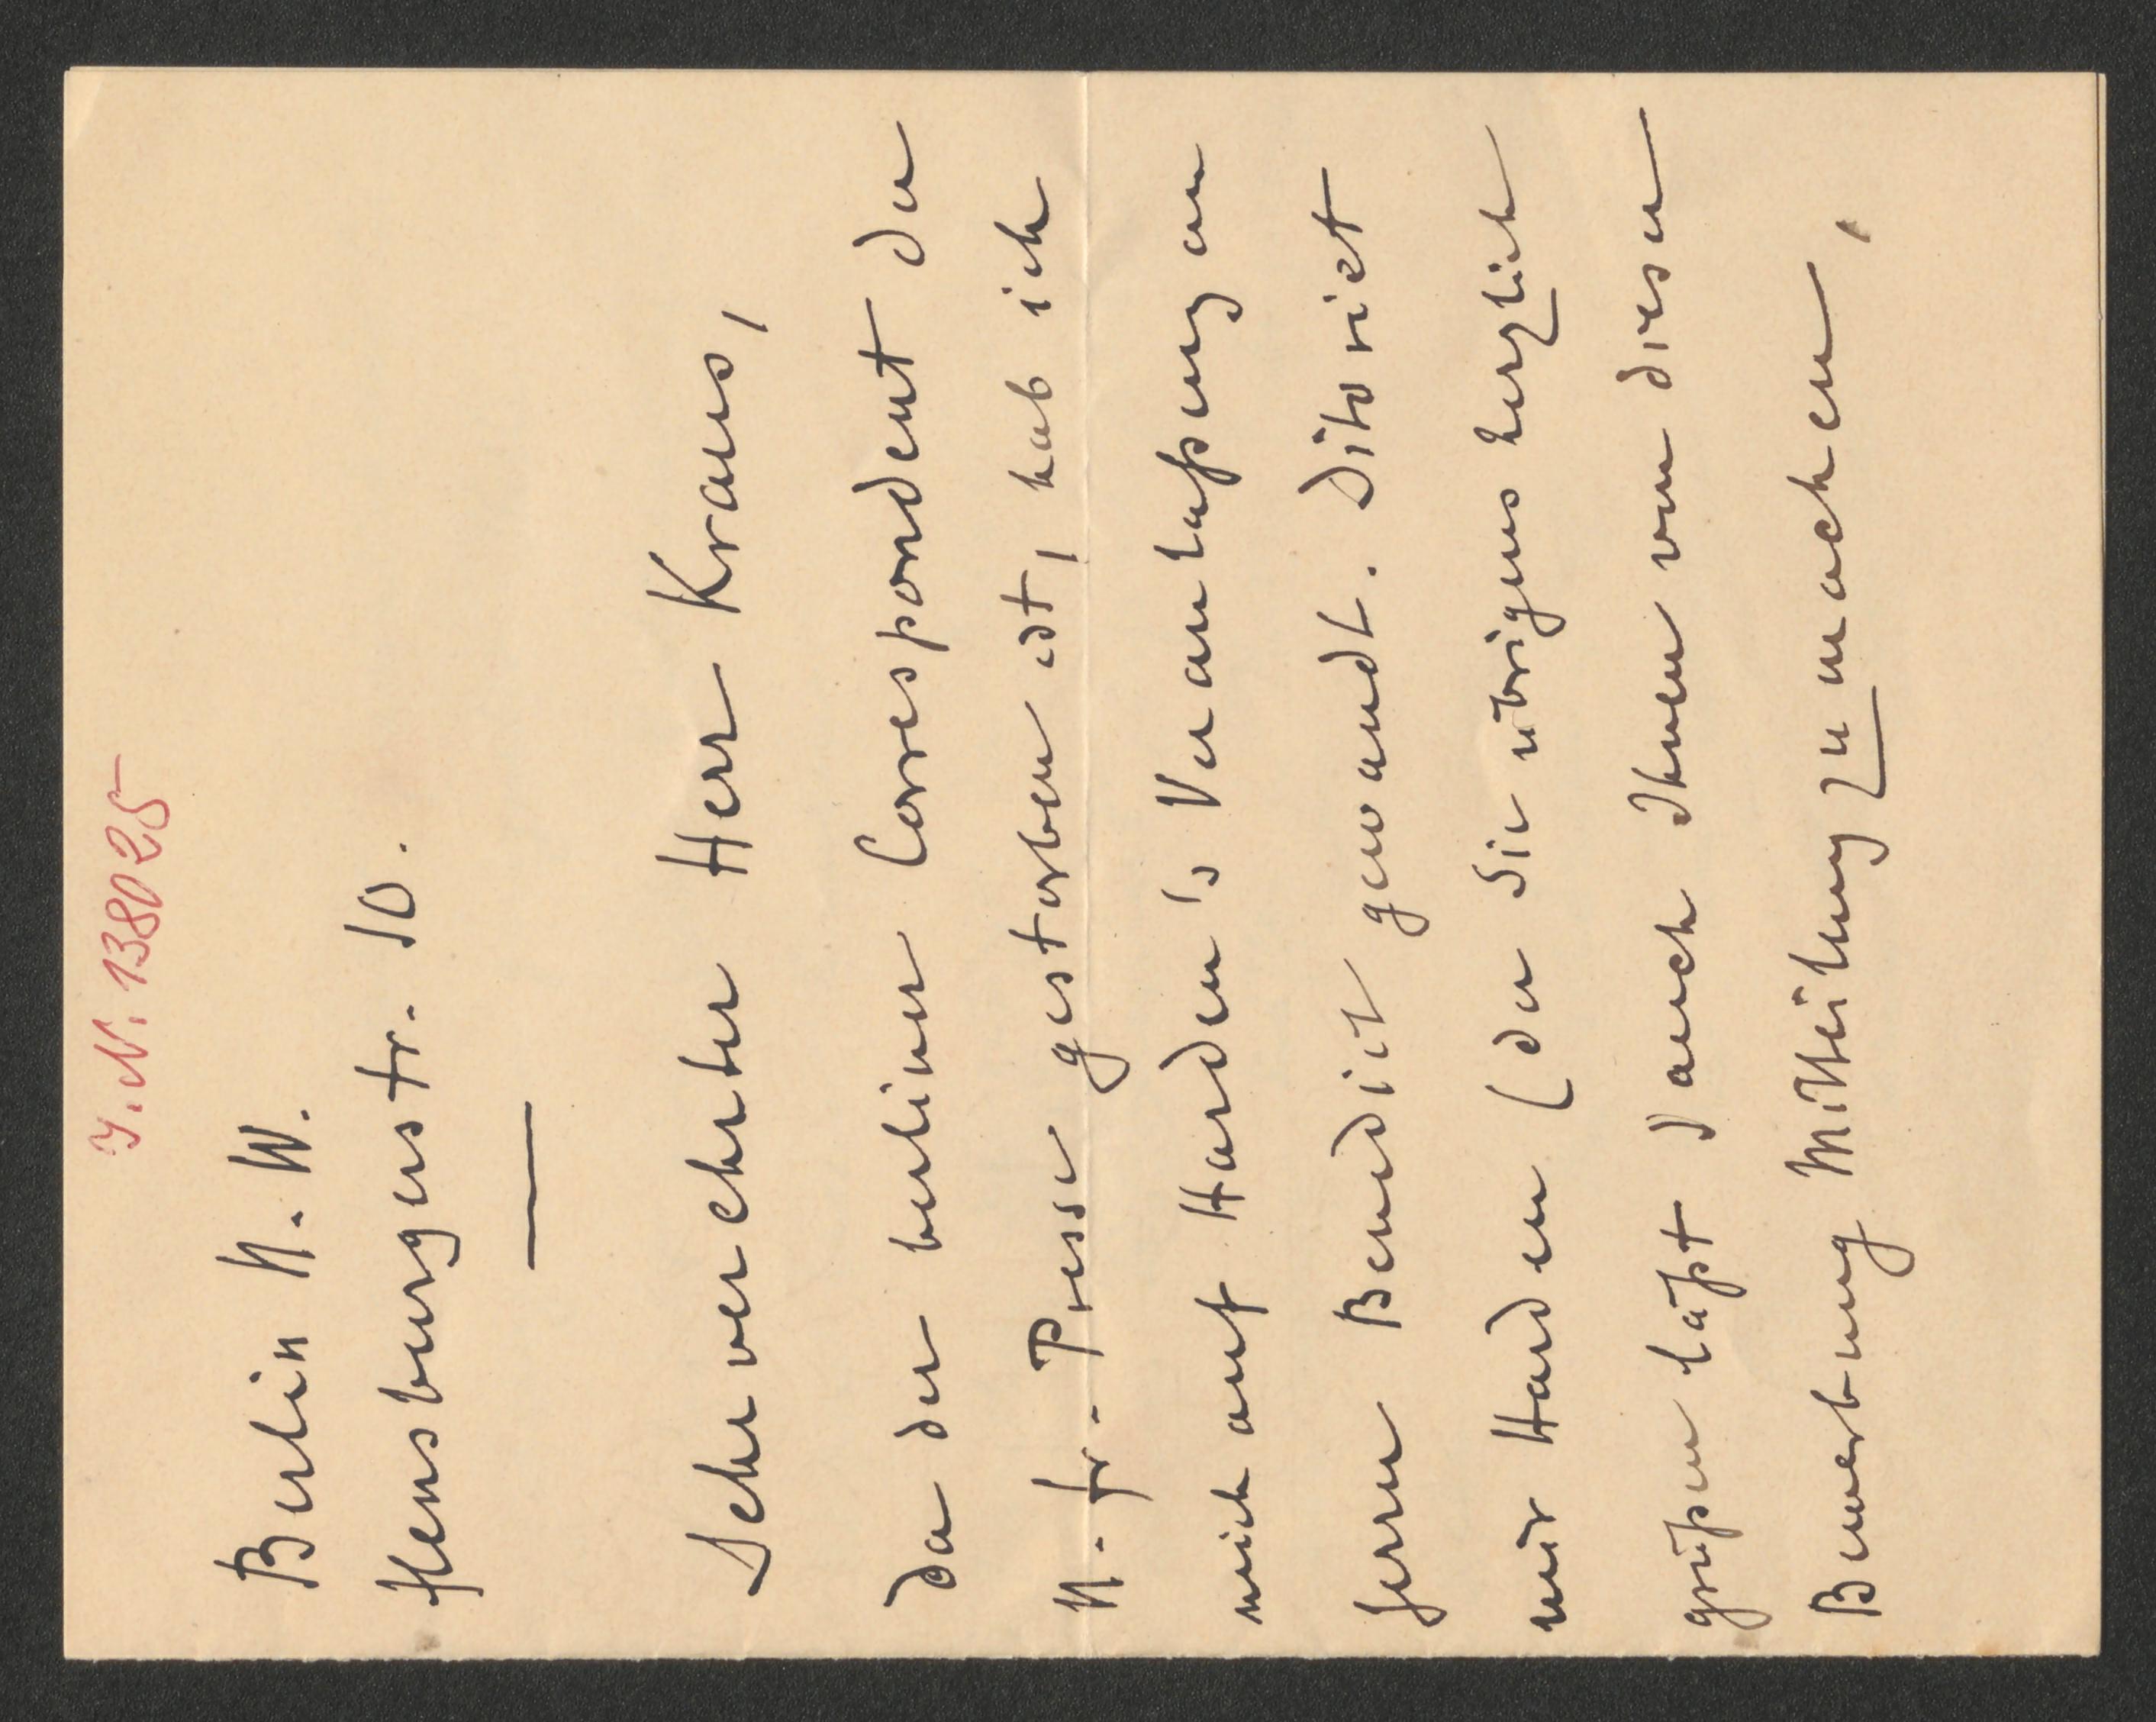 I.N. 138025
Berlin N.W.
Flensburgerstr. 10.
Sehr verehrter Herr Kraus,
da der berliner Correspondent der
N. fr. Presse gestorben ist, hab ich
mich auf Harden's Veranlaßung an
Herrn Benedict gewandt. Dito riet
mir Harden (der Sie übrigens herzlich
grüßen läßt) auch Ihnen von dieser
Bewerbung Mitteilung zu machen,